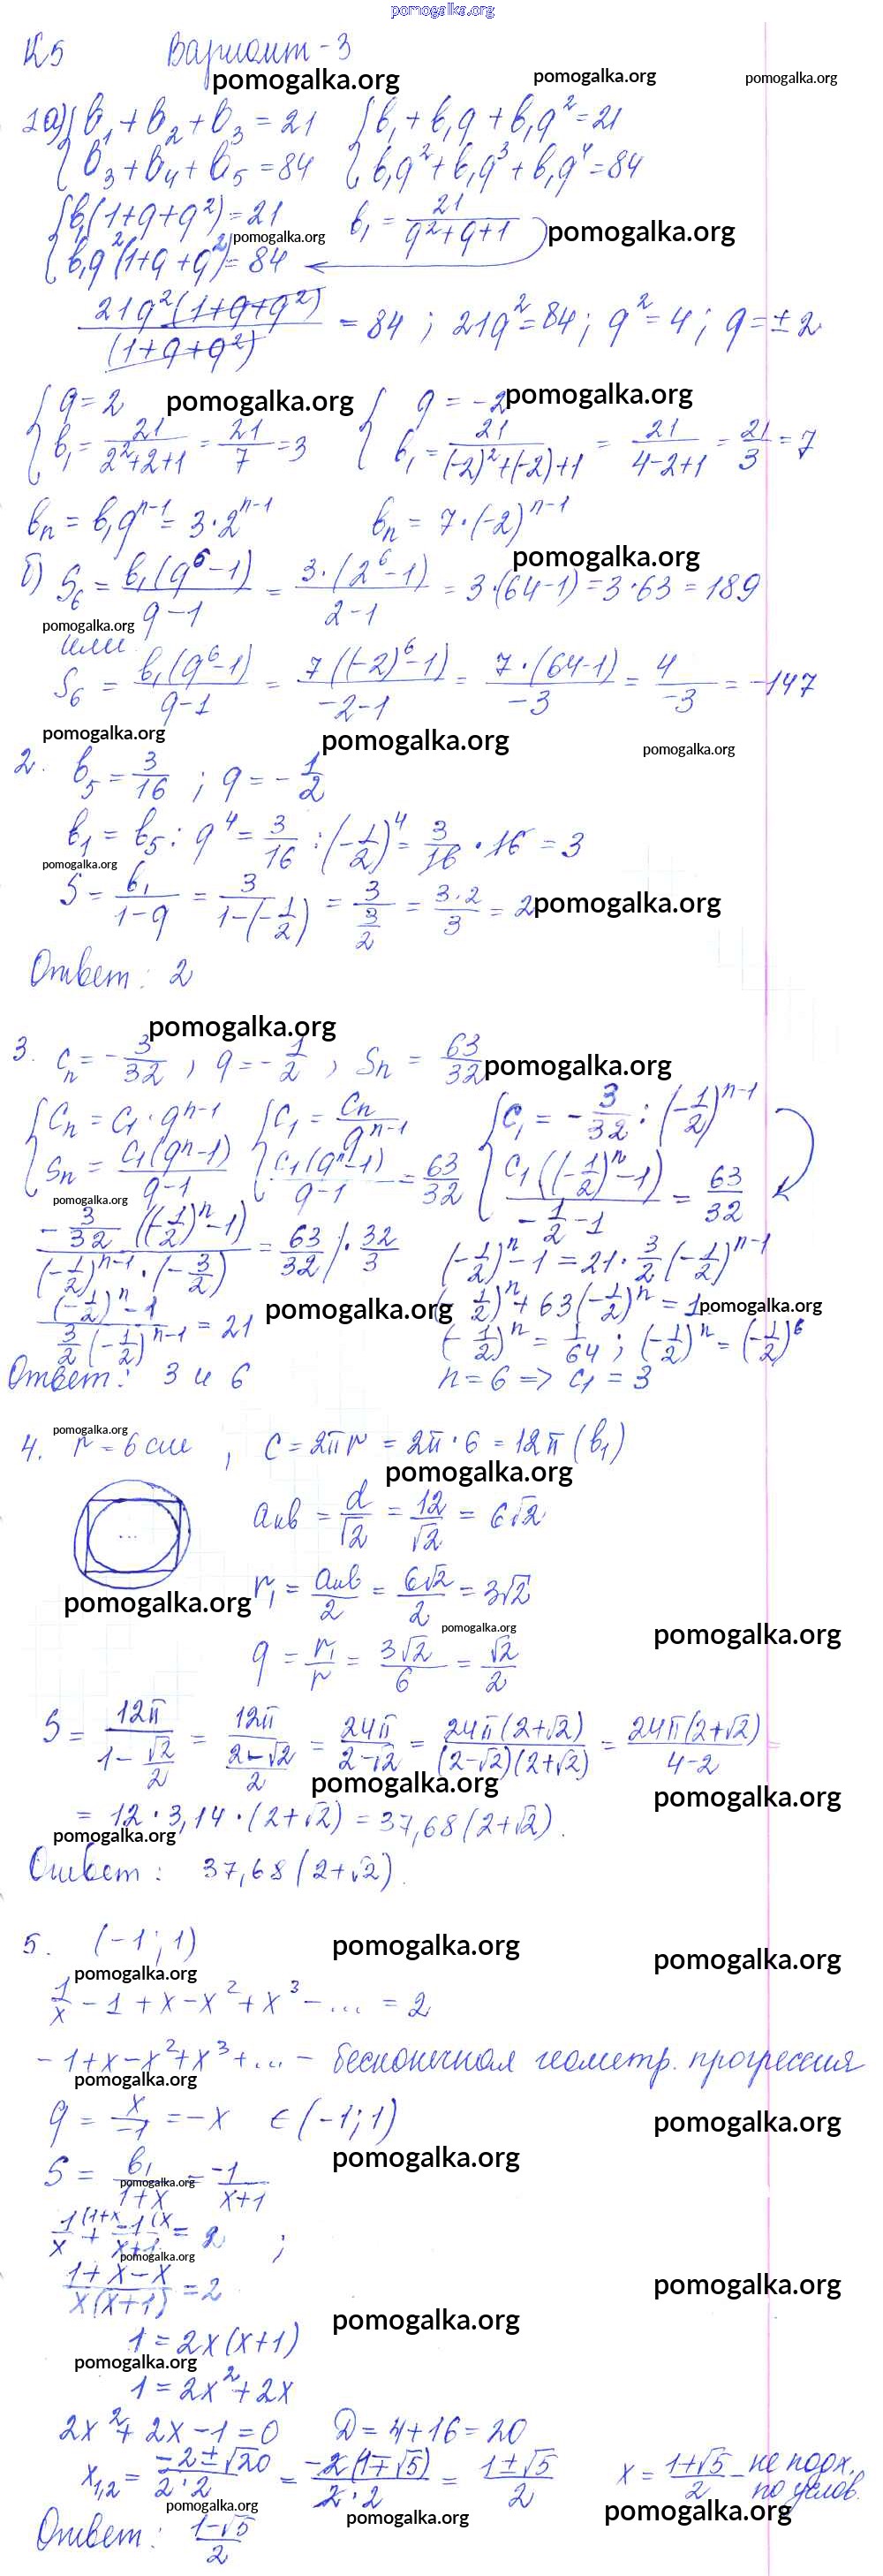 pomogalka.org
К5 Вариант-3
pomogalka.org pomogalka.org pomogalka.org
1а) { b₁ + b₂ + b₃ = 21 { b₁ + b₁q + b₁q² = 21
{ b₃ + b₄ + b₅ = 84 { b₁q² + b₁q³ + b₁q⁴ = 84
{ b₁(1+q+q²) = 21 b₁ = 21/(q²+q+1)
pomogalka.org pomogalka.org
{ b₁q²(1+q+q²) = 84
21q²(1+q+q²)/(1+q+q²) = 84 ; 21q² = 84 ; q² = 4 ; q = ±2
{ q = 2 pomogalka.org { q = -2 pomogalka.org
{ b₁ = 21/(2²+2+1) = 21/7 = 3 { b₁ = 21/((-2)²+(-2)+1) = 21/(4-2+1) = 21/3 = 7
bₙ = b₁qⁿ⁻¹ = 3·2ⁿ⁻¹ bₙ = 7·(-2)ⁿ⁻¹
pomogalka.org
б) S₆ = b₁(q⁶-1)/(q-1) = 3·(2⁶-1)/(2-1) = 3·(64-1) = 3·63 = 189
pomogalka.org
или
S₆ = b₁(q⁶-1)/(q-1) = 7((-2)⁶-1)/(-2-1) = 7·(64-1)/(-3) = 4/(-3) = -147
pomogalka.org pomogalka.org pomogalka.org
2. b₅ = 3/16 ; q = -1/2
b₁ = b₅ : q⁴ = 3/16 : (-1/2)⁴ = 3/16 · 16 = 3
pomogalka.org
S = b₁/(1-q) = 3/(1-(-1/2)) = 3/(3/2) = 3·2/3 = 2 pomogalka.org
Ответ: 2
pomogalka.org
3. cₙ = -3/32 , q = -1/2 , Sₙ = 63/32 pomogalka.org
{ cₙ = c₁·qⁿ⁻¹ { c₁ = cₙ/qⁿ⁻¹ { c₁ = -3/32 : (-1/2)ⁿ⁻¹
{ Sₙ = c₁(qⁿ-1)/(q-1) { c₁(qⁿ-1)/(q-1) = 63/32 { c₁((-1/2)ⁿ-1)/(-1/2-1) = 63/32
pomogalka.org
-3/32((-1/2)ⁿ-1)/((-1/2)ⁿ⁻¹·(-3/2)) = 63/32 |· 32/3 (-1/2)ⁿ-1 = 21·3/2(-1/2)ⁿ⁻¹
((-1/2)ⁿ-1)/(3/2(-1/2)ⁿ⁻¹) = 21 pomogalka.org (-1/2)ⁿ + 63(-1/2)ⁿ = 1 pomogalka.org
(-1/2)ⁿ = 1/64 ; (-1/2)ⁿ = (-1/2)⁶
Ответ: 3 и 6 n = 6 => c₁ = 3
pomogalka.org
4. r = 6 см , C = 2πr = 2π·6 = 12π (b₁)
pomogalka.org
a кв = d/√2 = 12/√2 = 6√2
...
pomogalka.org r₁ = aкв/2 = 6√2/2 = 3√2
pomogalka.org pomogalka.org
q = r₁/r = 3√2/6 = √2/2
S = 12π/(1-√2/2) = 12π/((2-√2)/2) = 24π/(2-√2) = 24π(2+√2)/((2-√2)(2+√2)) = 24π(2+√2)/(4-2) =
pomogalka.org pomogalka.org
= 12·3,14·(2+√2) = 37,68(2+√2).
pomogalka.org
Ответ: 37,68(2+√2).
5. (-1; 1) pomogalka.org pomogalka.org
pomogalka.org
1/x - 1 + x - x² + x³ - ... = 2
-1+x-x²+x³+... - бесконечная геометр. прогрессия
pomogalka.org
q = x/-1 = -x ∈ (-1; 1) pomogalka.org
pomogalka.org
S = b₁/(1+x) = -1/(x+1)
pomogalka.org
1/x (1+x + -1/(x+1) (x = 2 ;
pomogalka.org
(1+x-x)/(x(x+1)) = 2 pomogalka.org
pomogalka.org
1 = 2x(x+1)
pomogalka.org
1 = 2x² + 2x
2x² + 2x - 1 = 0 D = 4+16 = 20
x₁,₂ = (-2±√20)/(2·2) = -2(1∓√5)/(2·2) = (1±√5)/2 x = (1+√5)/2 - не подх. по услов.
pomogalka.org pomogalka.org pomogalka.org
Ответ: (1-√5)/2